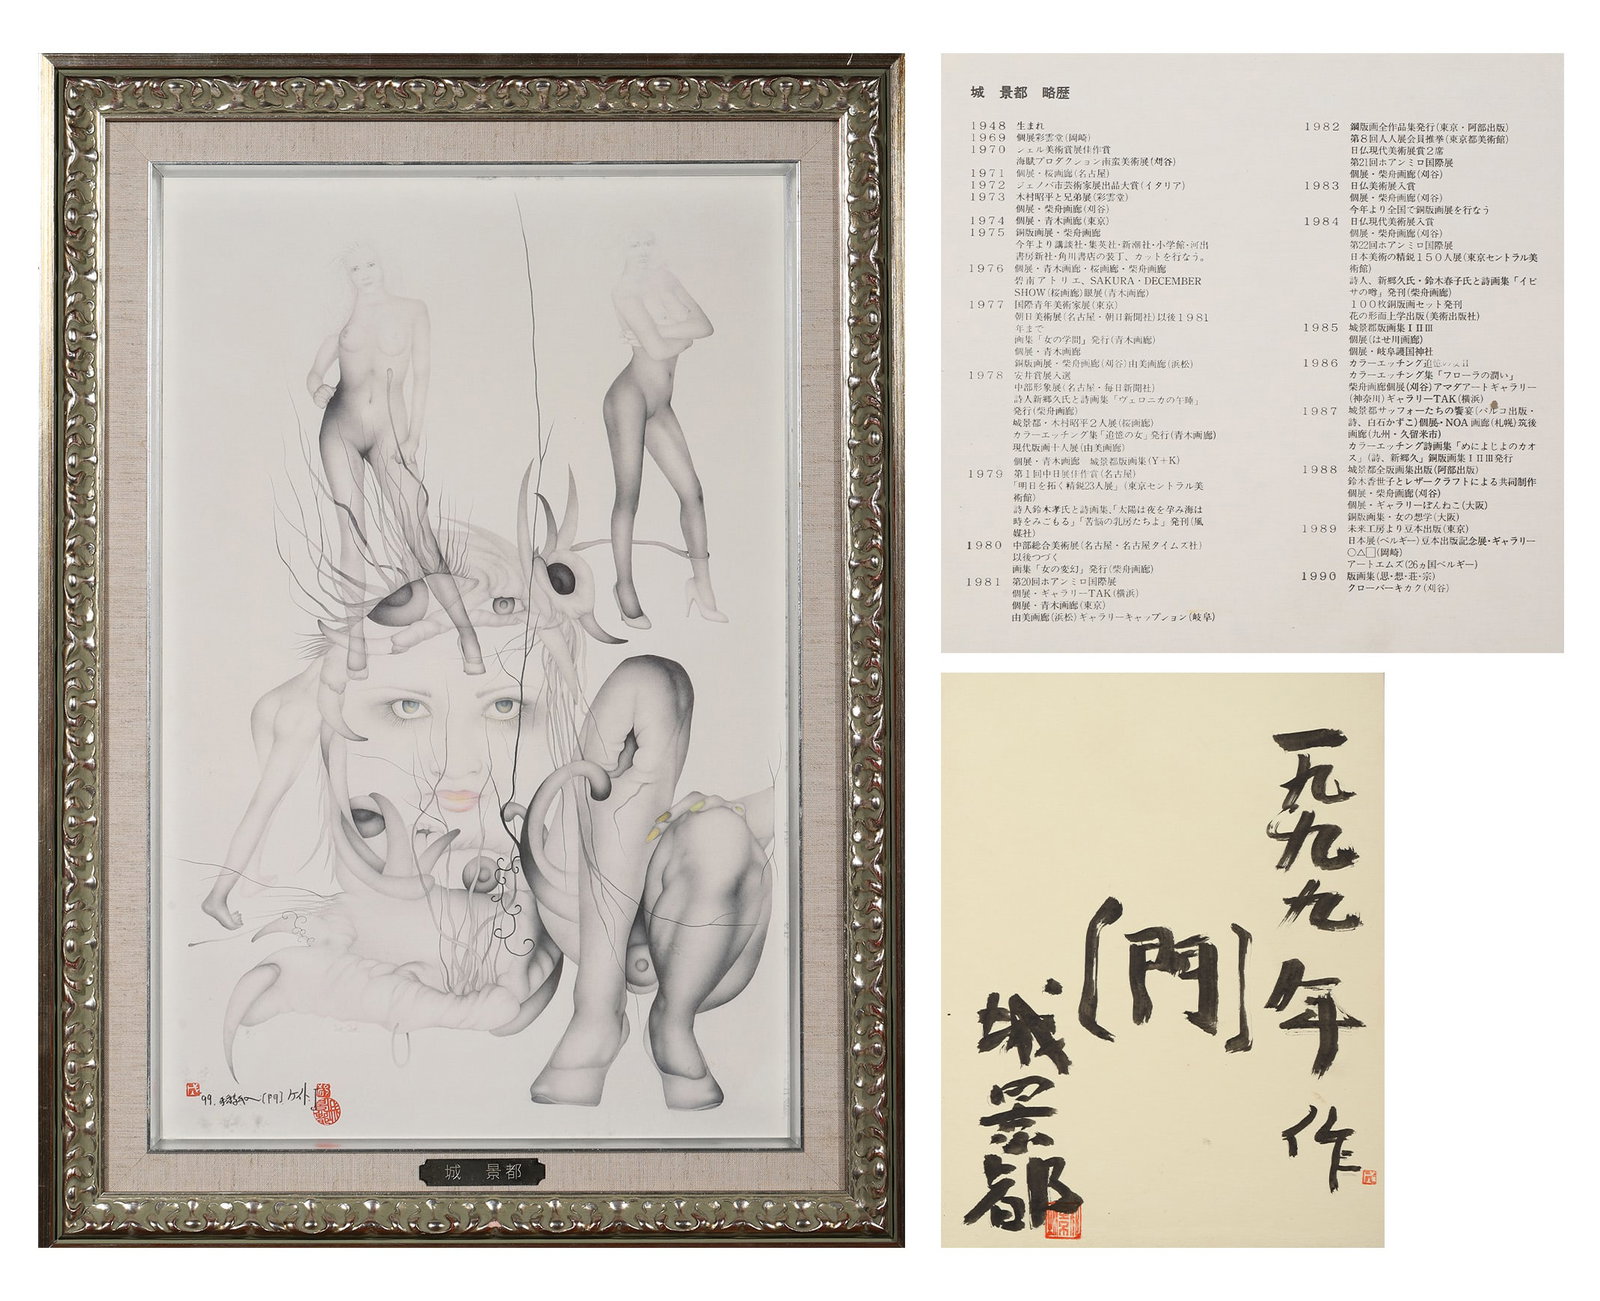 城 景都 略歴
1948 生まれ
1969 個展彩雲堂(岡崎)
1970 シェル美術賞展佳作賞
海賦プロダクション南蛮美術展(刈谷)
1971 個展・桜画廊(名古屋)
1972 ジェノバ市芸術家展出品大賞(イタリア)
1973 木村昭平と兄弟展(彩雲堂)
個展・柴舟画廊(刈谷)
1974 個展・青木画廊(東京)
1975 銅版画展・柴舟画廊
今年より講談社・集英社・新潮社・小学館・河出
書房新社・角川書店の装丁、カットを行なう。
1976 個展・青木画廊・桜画廊・柴舟画廊
碧南アトリエ、SAKURA・DECEMBER
SHOW(桜画廊)眼展(青木画廊)
1977 国際青年美術家展(東京)
朝日美術展(名古屋・朝日新聞社)以後1981
年まで
画集「女の学問」発行(青木画廊)
個展・青木画廊
銅版画展・柴舟画廊(刈谷)由美画廊(浜松)
1978 安井賞展入選
中部形象展(名古屋・毎日新聞社)
詩人新郷久氏と詩画集「ヴェロニカの午睡」
発行(柴舟画廊)
城景都・木村昭平2人展(桜画廊)
カラーエッチング集「追憶の女」発行(青木画廊)
現代版画十人展(由美画廊)
個展・青木画廊 城景都版画集(Y+K)
1979 第1回中日展佳作賞(名古屋)
「明日を拓く精鋭23人展」(東京セントラル美
術館)
詩人鈴木孝氏と詩画集、「太陽は夜を孕み海は
時をみごもる」「苦悩の乳房たちよ」発刊(風
媒社)
1980 中部総合美術展(名古屋・名古屋タイムズ社)
以後つづく
画集「女の変幻」発行(柴舟画廊)
1981 第20回ホアンミロ国際展
個展・ギャラリーTAK(横浜)
個展・青木画廊(東京)
由美画廊(浜松)ギャラリーキャップション(岐阜)
1982 銅版画全作品集発行(東京・阿部出版)
第8回人人展会員推挙(東京都美術館)
日仏現代美術展賞2席
第21回ホアンミロ国際展
個展・柴舟画廊(刈谷)
1983 日仏美術展入賞
個展・柴舟画廊(刈谷)
今年より全国で銅版画展を行なう
1984 日仏現代美術展入賞
個展・柴舟画廊(刈谷)
第22回ホアンミロ国際展
日本美術の精鋭150人展(東京セントラル美
術館)
詩人、新郷久氏・鈴木春子氏と詩画集「イビ
サの噂」発刊(柴舟画廊)
100枚銅版画セット発刊
花の形而上学出版(美術出版社)
1985 城景都版画集ⅠⅡⅢ
個展(はせ川画廊)
個展・岐阜護国神社
1986 カラーエッチング追憶の
カラーエッチング集「フローラの潤い」
柴舟画廊個展(刈谷)アマダアートギャラリー
(神奈川)ギャラリーTAK(横浜)
1987 城景都サッフォーたちの饗宴(パルコ出版・
詩、白石かずこ)個展・NOA画廊(札幌)筑後
画廊(九州・久留米市)
カラーエッチング詩画集「めによじよのカオ
ス」(詩、新郷久)銅版画集ⅠⅡⅢ発行
1988 城景都全版画集出版(阿部出版)
鈴木香世子とレザークラフトによる共同制作
個展・柴舟画廊(刈谷)
個展・ギャラリーぽんねこ(大阪)
銅版画集・女の想学(大阪)
1989 未来工房より豆本出版(東京)
日本展(ベルギー)豆本出版記念展・ギャラリー
○△□(岡崎)
アートエムズ(26ヵ国ベルギー)
1990 版画集(思・想・荘・宗)
クローバーキカク(刈谷)
99. [門] ケイト.
城 景都
一九九九年作
[門]
城景都